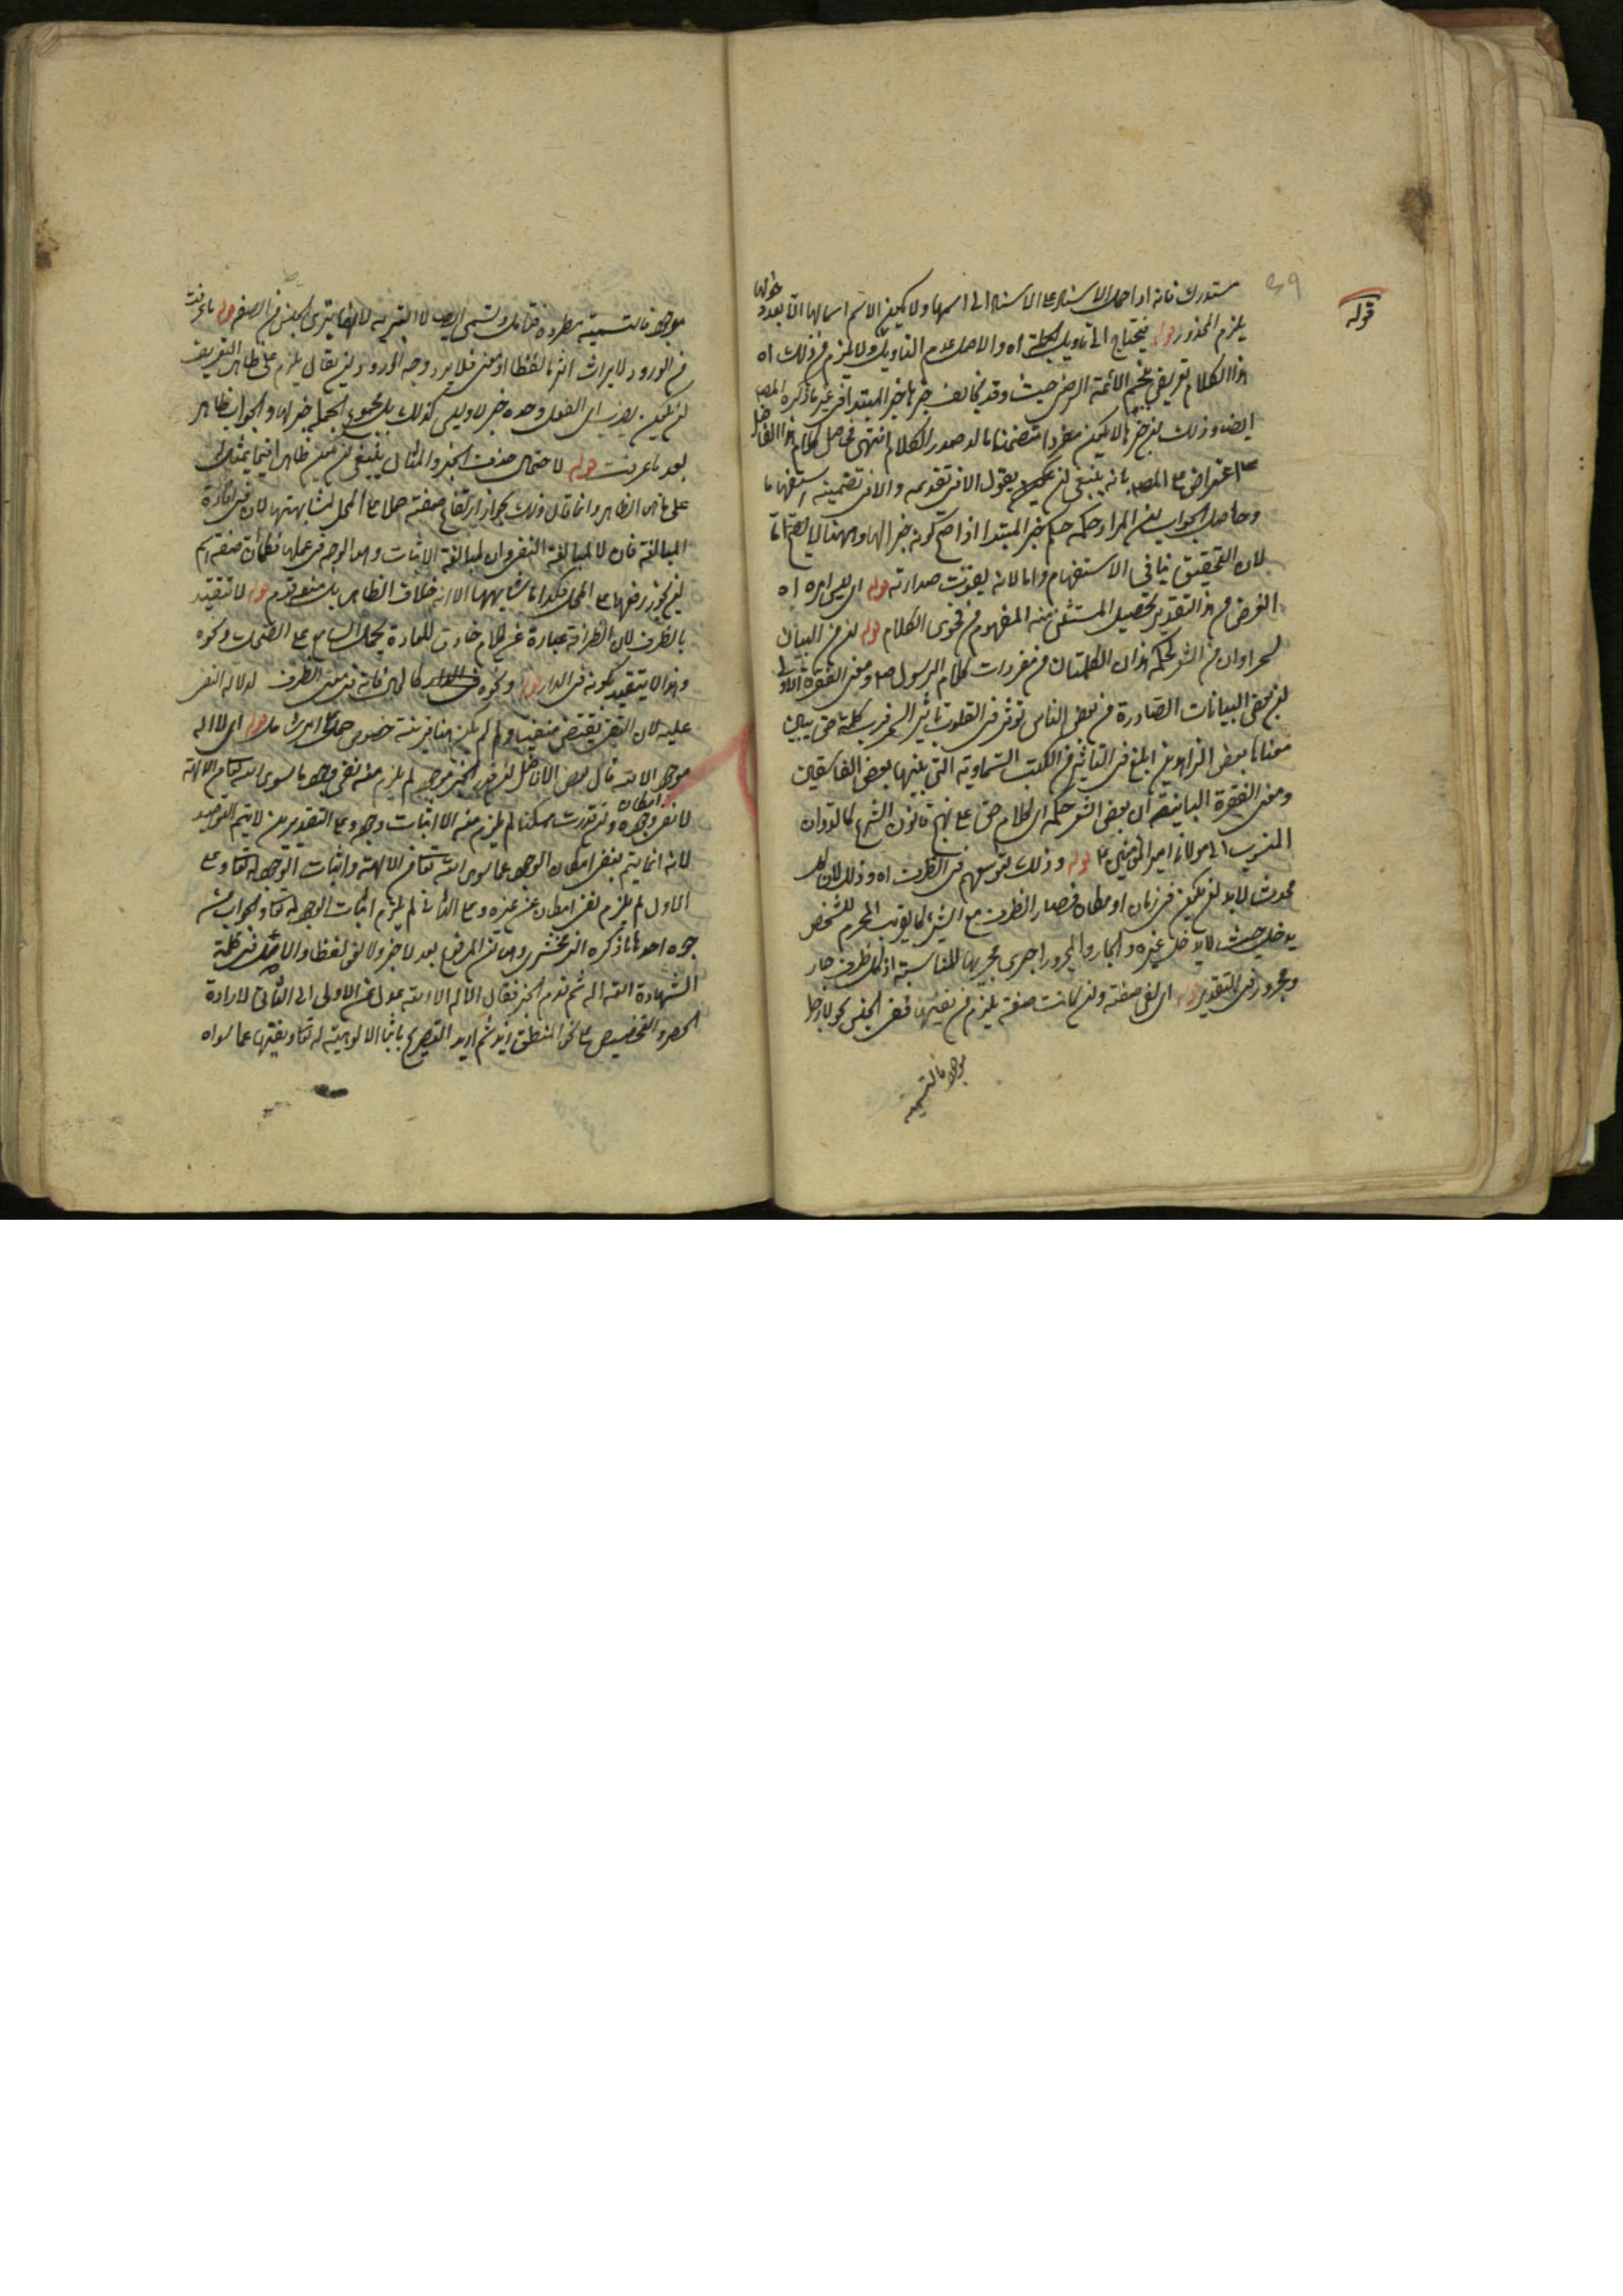 قوله
٤٩
مستدرك فانه اذا حمل الاسناد على الاسناد الى اسمها ولا يكون الاسم اسما لها الا بعد دخولها
يلزم المحذور قوله فيحتاج الى تأويل الجملة اه والاصل عدم التأويل ولا يلزم من ذلك اه
هذا الكلام تعريض بنجم الائمة الرضي حيث وقد يخالف خبرها خبر المبتدا في غير ما ذكره المص
ايضا وذلك ان خبرها لا يكون مفردا متضمنا ما له صدر الكلام انتهى حاصل كلام هذا الفاضل
اعتراض على المص بانه ينبغي ان يقول الا في تقديمه والا في تضمينه استفهاما
وحاصل الجواب ان المراد حكمه حكم خبر المبتدا اذا صح كونه خبرا لها وههنا لا يصح اما
لان التحقيق ينافي الاستفهام واما لانه يفوت صدارته قوله اي ليس امره اه
الغرض من هذا التقدير تحصيل المستثنى منه المفهوم من فحوى الكلام قوله ان من البيان
لسحرا وان من الشعر لحكمة هذان الكلمتان من مفردات كلام الرسول ص ومعنى الفقرة الاولى
ان بعض البيانات الصادرة من بعض الناس تؤثر في القلوب تأثير السحر فرب كلمة حق يبين
معناها بعض الزاهدين ابلغ في التأثير من الكتب السماوية التي يبينها بعض الفاسقين
ومعنى الفقرة الثانية ان بعض الشعر حكمة اي كلام حق على نهج قانون الشرع كالديوان
المنسوب الى مولانا امير المؤمنين ع قوله وذلك لتوسعهم في الظروف اه وذلك لان كل
محدث لا بد ان يكون في زمان او مكان فصار الظرف مع الشيء كالقريب المحرم للشخص
يدخل حيث لا يدخل غيره والجار والمجرور اجري مجراها للمناسبة اذ كل ظرف جار
ومجرور في التقدير قوله اي لنفي صفته وان كانت صفة يلزم من نفيها نفي الجنس نحو لا رجل
موجود فالتسمية
موجود فالتسمية مطردة فتأمل وتسمى ايضا لا التبرية لانها تبرئ الجنس من الصفة قوله ما عرفت
من الورود لا يراث اثرها لفظا او معنى فلا يرد وجه الورود ان يقال يلزم على ظاهر التعريف
ان يكون يضرب اي الفعل وحده خبر لا وليس كذلك بل مجموع الجملة خبر لها والجواب ظاهر
بعد ما عرفت قوله لاحتمال حذف الخبر والمثال ينبغي ان يكون ظاهرا فيما يمثل له
على ما هو الظاهر وانما قال ذلك بجواز ارتفاع صفته حملا على المحل لمشابهتها لان في افادة
المبالغة فان لا لمبالغة النفي وان لمبالغة الاثبات وهذا الوجه في عملها فكما ان صفة اسم
ان يجوز رفعها على المحل فكذا ما شابهها الا انه خلاف الظاهر بل ممنوع قوله لا تتقيد
بالظرف لان الظرافة عبارة عن كلام خارق للعادة يحمل السامع على الضحك ونحوه
وهذا لا يتقيد بكونه في الدار قوله ونحوه كالحين فانه في معنى الظرف لدلالة النفي
عليه لان النفي يقتضي منفيا ولو لم يكن هنا قرينة خصوص حمل على العام قوله اي لا اله
موجود الا الله قال بعض الافاضل ان قدر الخبر موجود لم يلزم منه نفي امكان ما سوى الله تعالى من الالهة
لا نفي وجوده وان قدرت ممكنا لم يلزم منه الا اثبات وجوده وعلى التقديرين لا يتم التوحيد
لانه انما يتم بنفي امكان الوجود عما سوى الله تعالى من الالهة واثبات الوجود له تعالى وعلى
الاول لم يلزم نفي امكان عن غيره وعلى الثاني لم يلزم اثبات الوجود له تعالى والجواب من
وجوه احدها ما ذكره الزمخشري وهو ان المرفوع بعد لا خبر ولا لغو لفظا والاصل في كلمة
الشهادة الله اله ثم قدم الخبر فقال الاله الا الله عدل عن الاولى الى الثاني لارادة
الحصر والتخصيص على نحو المنطلق زيد ثم اريد التصريح باثبات الالوهية له تعالى ونفيها عما سواه